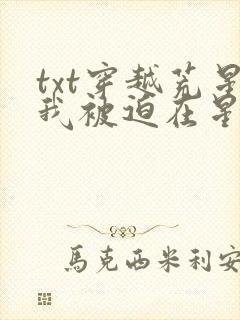 txt穿越荒星
我被迫在星
馬克西米利安